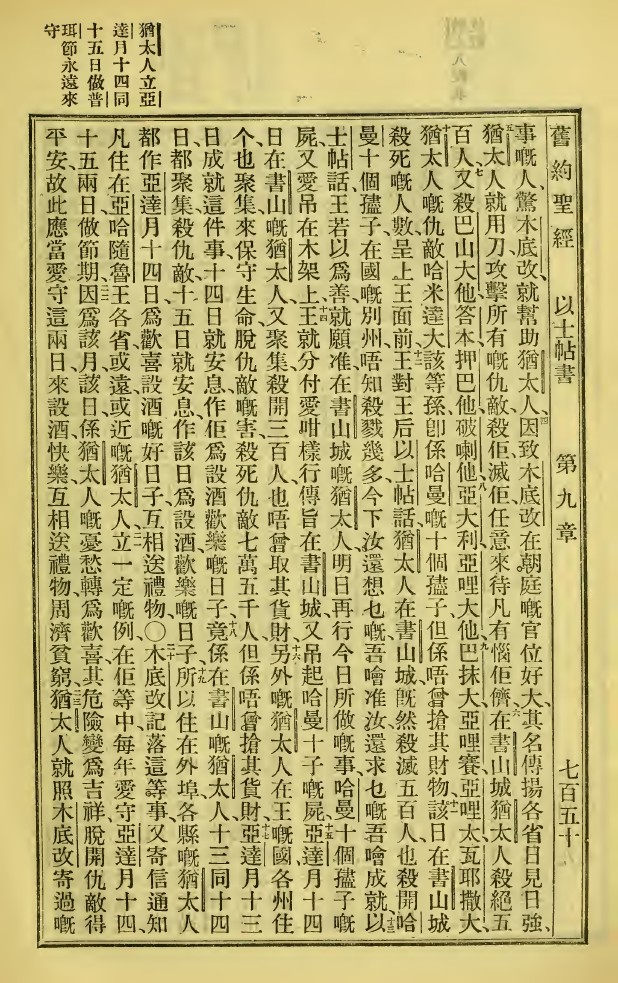 舊約聖經 以士帖書 第九章 七百五十
事嘅人、驚木底改就幫助猶太人、四因致木底改在朝庭嘅官位好大、其名傳揚各省、日見日強、
五猶太人就用刀攻擊所有嘅仇敵、殺佢滅佢、任意來待凡有惱佢儕、六在書山城猶太人殺絕五
百人、七又殺巴山大他、答本、押巴他、八破喇他、亞大利、亞哩大他、九巴抹大、亞哩賽、亞哩太、瓦耶撒大、
十猶太人嘅仇敵哈米達大該等孫、卽係哈曼嘅十個孺子、但係唔曾搶其財物、十一該日在書山城
殺死嘅人數、呈上王面前、十二王對王后以士帖話、猶太人在書山城旣然殺滅五百人、也殺開哈
曼十個孺子、在國嘅別州、唔知殺戮幾多、今下汝還想乜嘅、吾噲准汝、還求乜嘅、吾噲成就、十三以
士帖話、王若以爲善、就願准在書山城嘅猶太人、明日再行今日所做嘅事、哈曼十個孺子嘅
屍、又愛吊在木架上、十四王就分付愛咁樣行、傳旨在書山城、又吊起哈曼十子嘅屍、十五亞達月十四
日、在書山嘅猶太人、又聚集殺開三百人、也唔曾取其貨財、十六另外嘅猶太人、在王嘅國各州住
个、也聚集來保守生命、脫仇敵嘅害、殺死仇敵七萬五千人、但係唔曾搶其貨財、十七亞達月十三
日、成就這件事、十四日就安息、作佢爲設酒歡樂嘅日子、十八竟係在書山嘅猶太人、十三同十四
日、都聚集殺仇敵、十五日就安息、作該日爲設酒歡樂嘅日子、十九所以住在外埠各縣嘅猶太人、
都作亞達月十四日、爲歡喜設酒嘅好日子、互相送禮物、〇二十木底改記落這等事、又寄信通知
凡住在亞哈隨魯王各省、或遠或近嘅猶太人、二一立一定嘅例、在佢等中、每年愛守亞達月十四、
十五兩日做節期、二二因爲該月該日、係猶太人嘅憂愁轉爲歡喜、其危險變爲吉祥、脫開仇敵得
平安、故此應當愛守這兩日、來設酒快樂、互相送禮物、周濟貧窮、二三猶太人就照木底改寄過嘅
猶太人立亞
達月十四同
十五日做普
珥節永遠來
守